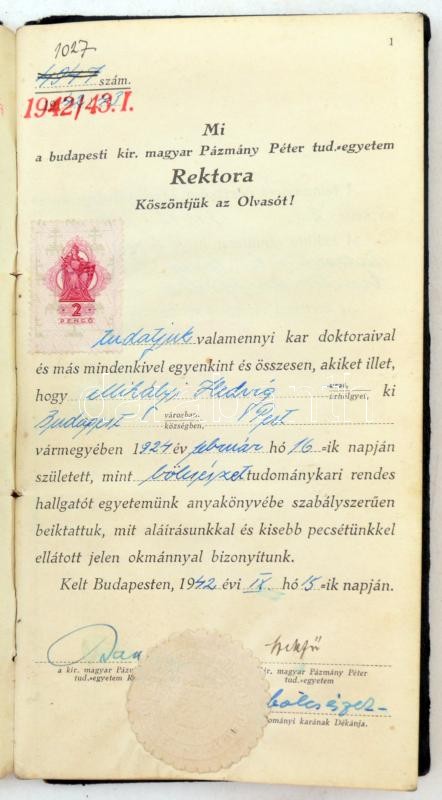 1027
1
4947 szám.
1942/43. I.
Mi
a budapesti kir. magyar Pázmány Péter tud.-egyetem
Rektora
Köszöntjük az Olvasót!
2
PENGŐ
tudatjuk valamennyi kar doktoraival
és más mindenkivel egyenkint és összesen, akiket illet,
hogy Mihályi Hedvig úrhölgyet, ki
Budapest városban, Pest
községben,
vármegyében 1924 év február hó 16-ik napján
született, mint bölcsészet tudománykari rendes
hallgatót egyetemünk anyakönyvébe szabályszerűen
beiktattuk, mit aláírásunkkal és kisebb pecsétünkkel
ellátott jelen okmánnyal bizonyítunk.
Kelt Budapesten, 1942 évi IX. hó 15-ik napján.
Szekfű
a kir. magyar Pázm
ir. magyar Pázmány Péter
tud.-egyetem R
tud.-egyetem
bölcsészet-
dományi karának Dékánja.